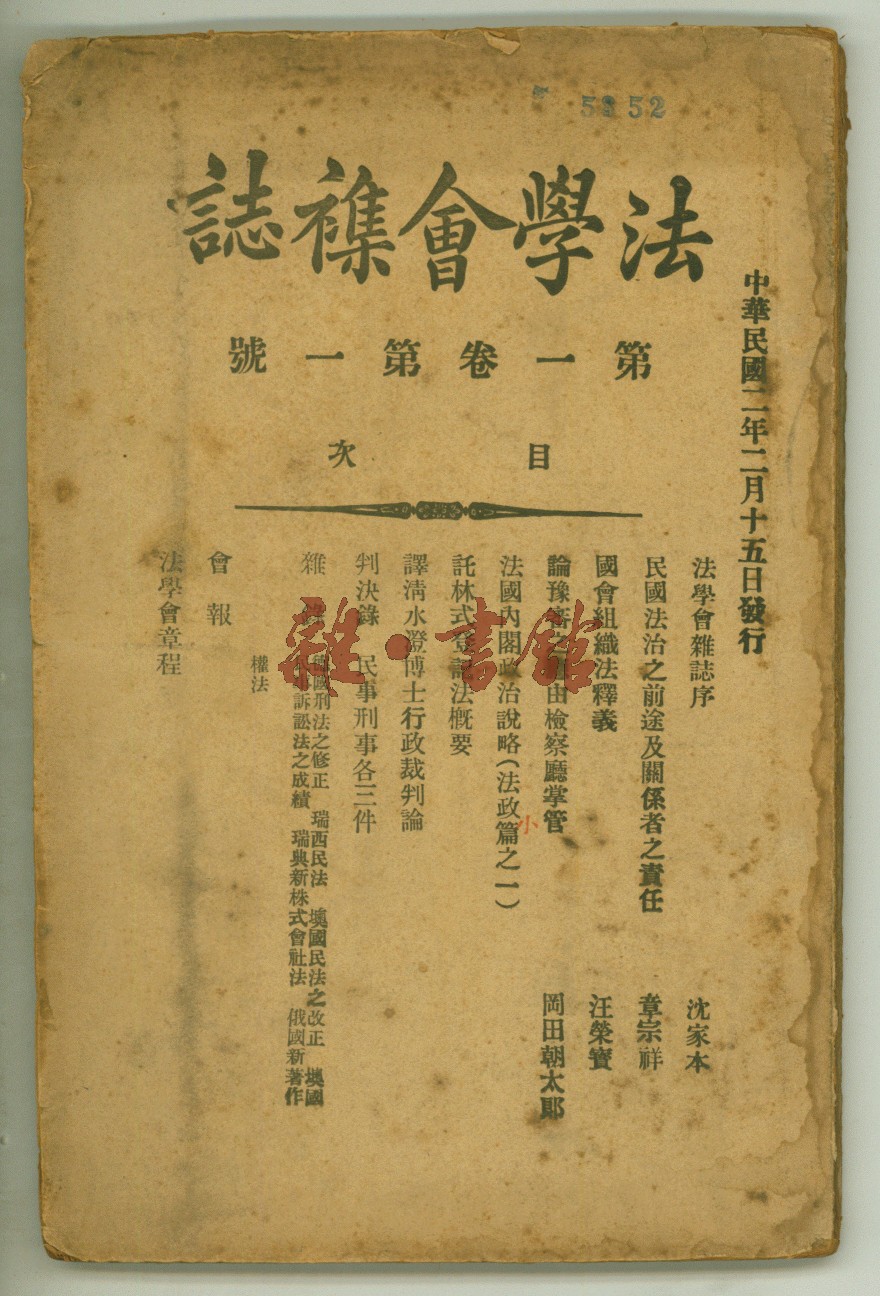 5852
中華民國二年二月十五日發行
法學會襍誌
第一卷第一號
目次
法學會雜誌序 沈家本
民國法治之前途及關係者之責任 章宗祥
國會組織法釋義 汪榮寶
論豫審之 由檢察廳掌管 岡田朝太郎
法國內閣政治說略(法政篇之一)
小
託林式登記法概要
譯淸水澄博士行政裁判論
判決錄 民事刑事各三件
雜錄 國刑法之修正 瑞西民法 墺國民法之改正 墺國
訴訟法之成績 瑞典新株式會社法 俄國新著作
權法
會報
法學會章程
雜·書館